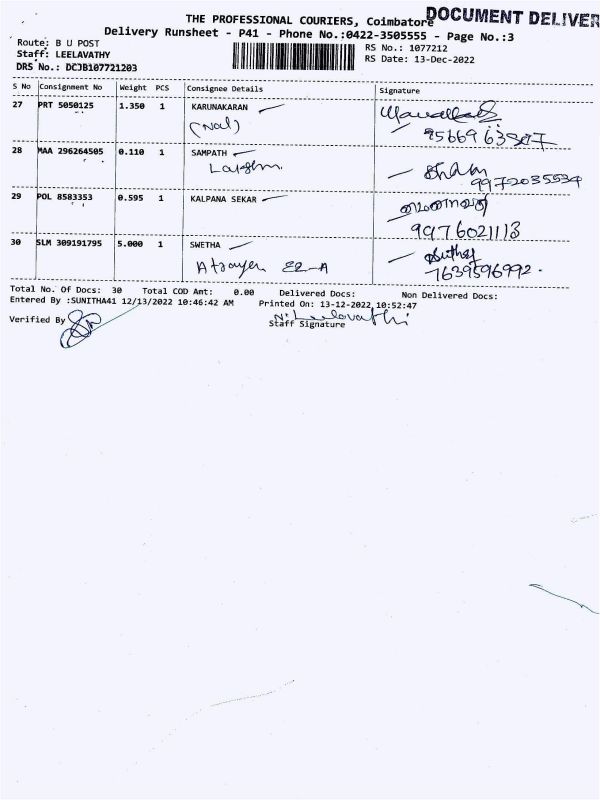 THE PROFESSIONAL COURIERS, Coimbatore
DOCUMENT DELIVER
Delivery Runsheet - P41 - Phone No.:0422-3505555 - Page No.:3
Route: B U POST
RS No.: 1077212
Staff: LEELAVATHY
RS Date: 13-Dec-2022
DRS No.: DCJB107721203
S No Consignment No Weight PCS Consignee Details Signature
27 PRT 5050125 1.350 1 KARUNAKARAN
28 MAA 296264505 0.110 1 SAMPATH
9972035534
29 POL 8583353 0.595 1 KALPANA SEKAR
9976021113
30 SLM 309191795 5.000 1 SWETHA
7639596992.
Total No. Of Docs: 30 Total COD Amt: 0.00 Delivered Docs: Non Delivered Docs:
Entered By :SUNITHA41 12/13/2022 10:46:42 AM Printed On: 13-12-2022 10:52:47
N. Leelavathi
Verified By
Staff Signature